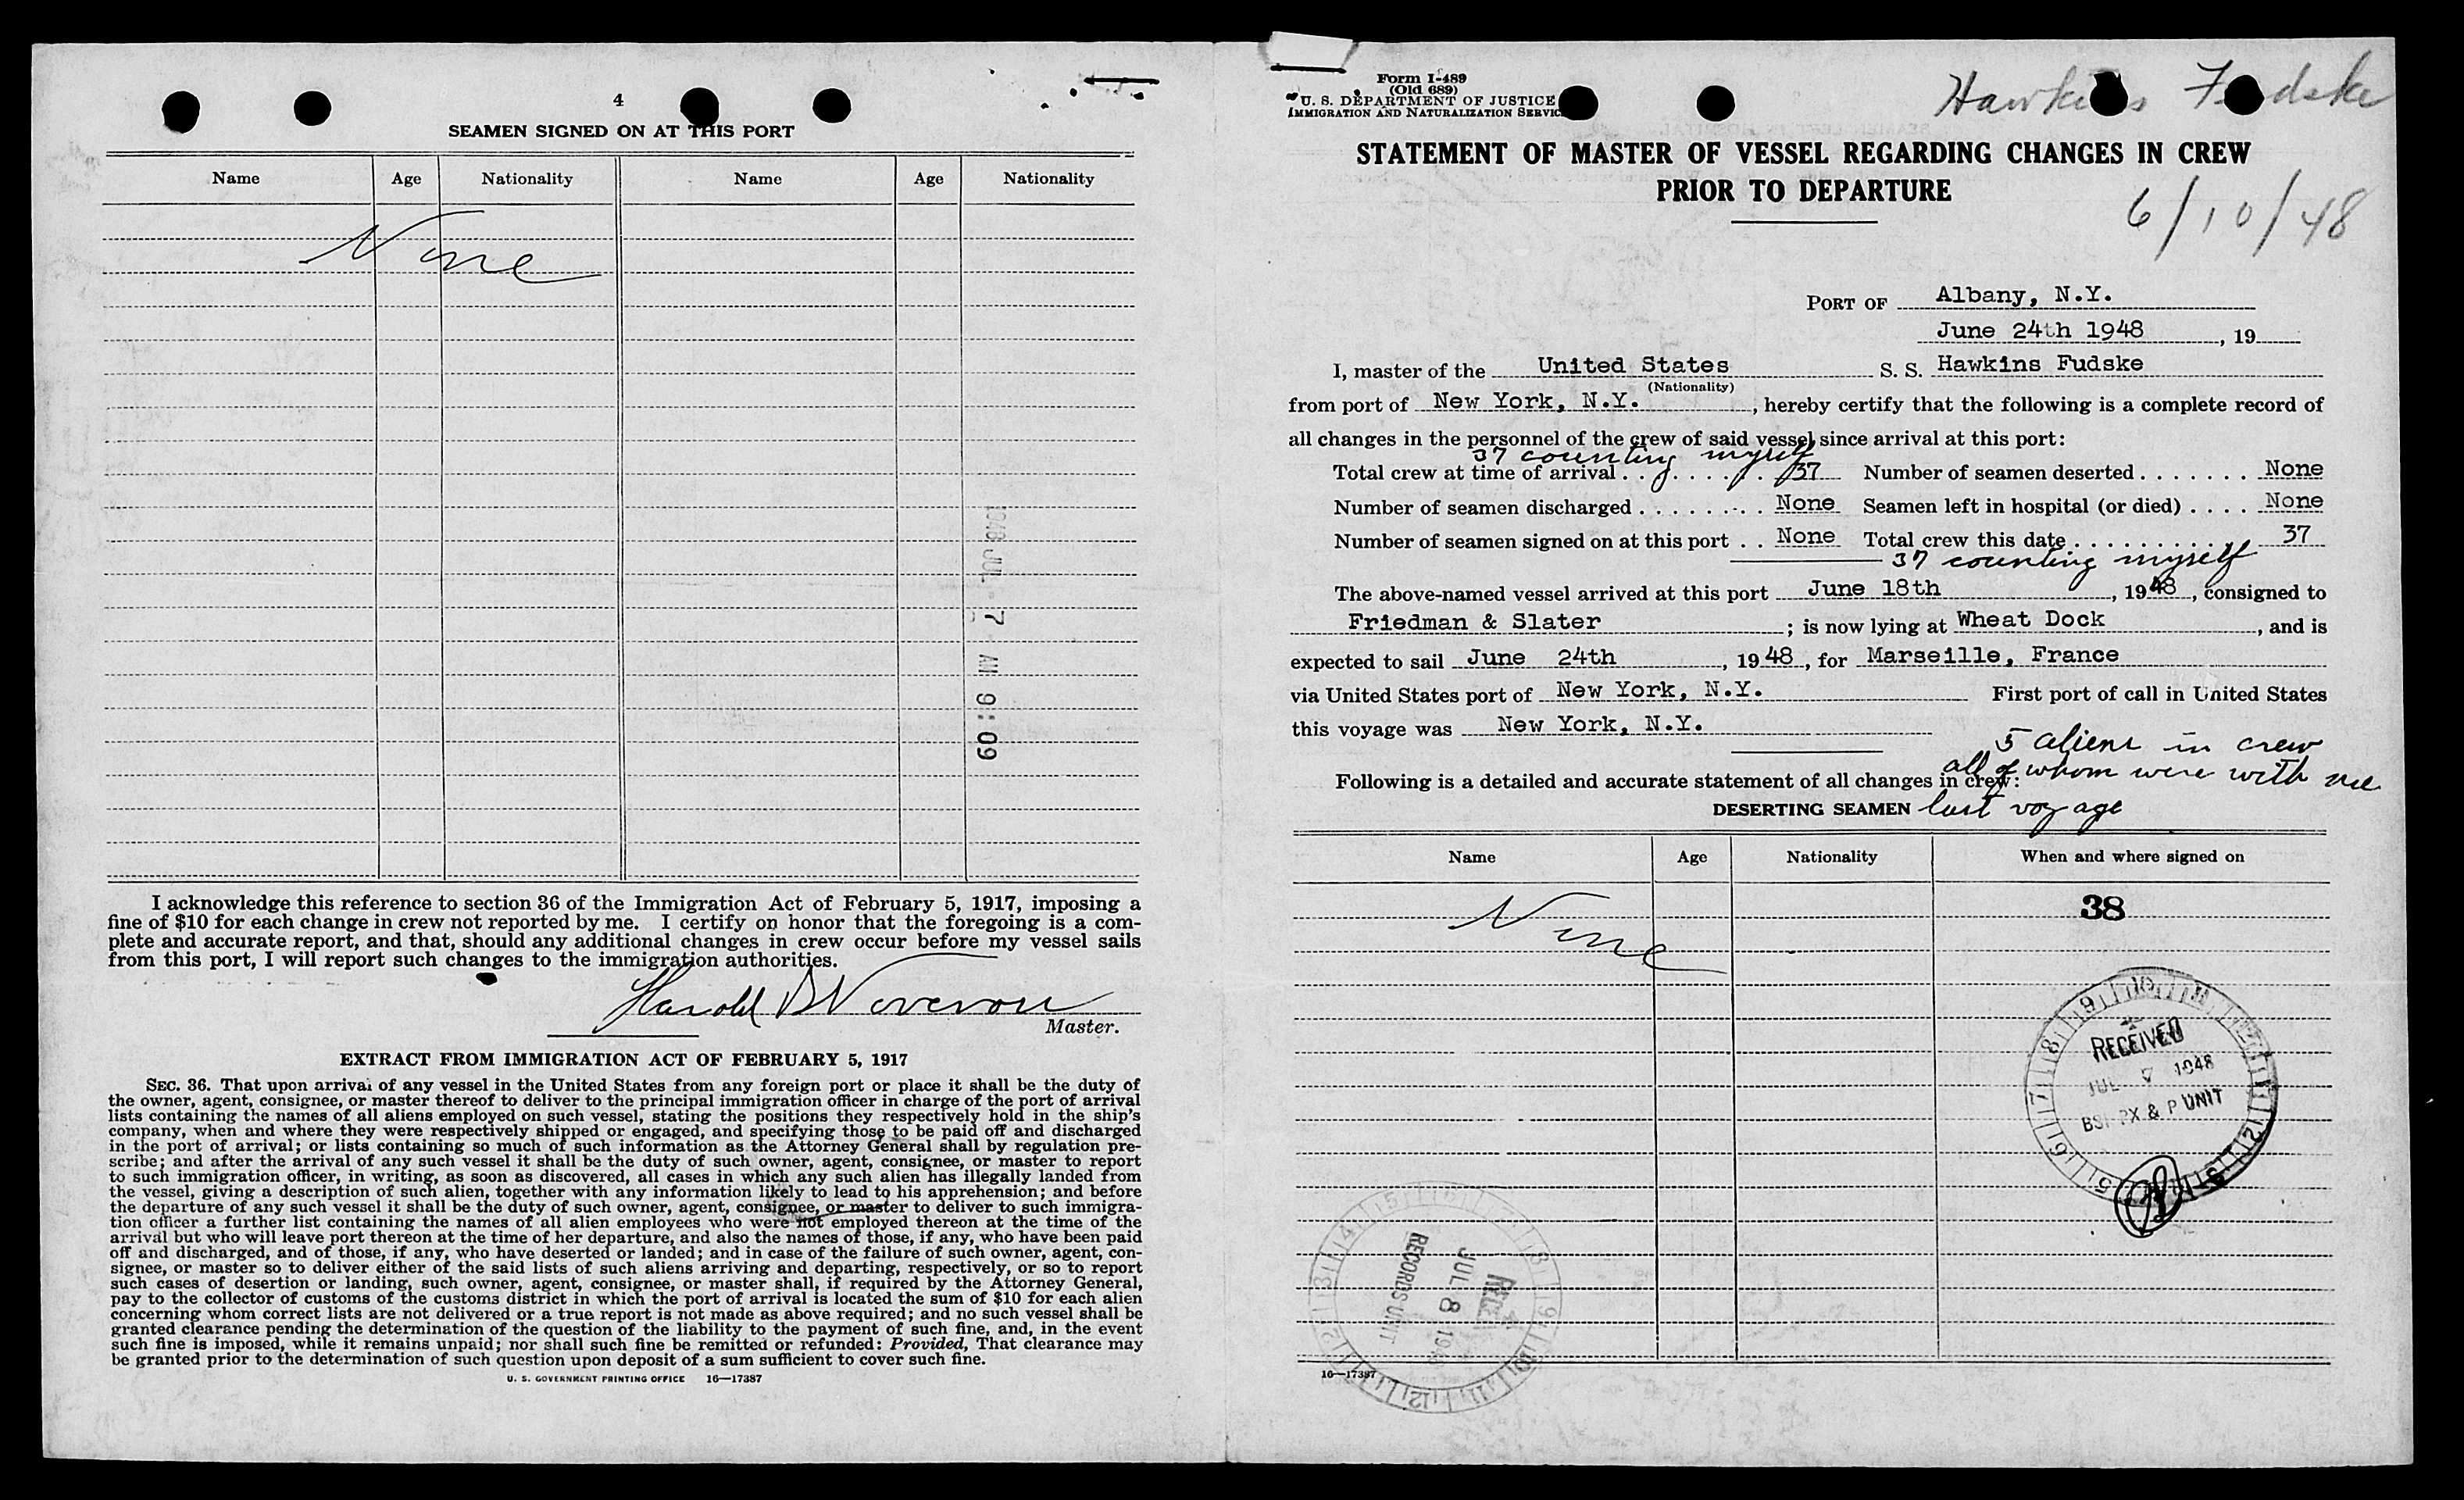 4
SEAMEN SIGNED ON AT THIS PORT
Name Age Nationality Name Age Nationality
None
1948 JUL - 7 AM 9:09
I acknowledge this reference to section 36 of the Immigration Act of February 5, 1917, imposing a
fine of $10 for each change in crew not reported by me. I certify on honor that the foregoing is a com-
plete and accurate report, and that, should any additional changes in crew occur before my vessel sails
from this port, I will report such changes to the immigration authorities.
Harold
Master.
EXTRACT FROM IMMIGRATION ACT OF FEBRUARY 5, 1917
SEC. 36. That upon arrival of any vessel in the United States from any foreign port or place it shall be the duty of
the owner, agent, consignee, or master thereof to deliver to the principal immigration officer in charge of the port of arrival
lists containing the names of all aliens employed on such vessel, stating the positions they respectively hold in the ship's
company, when and where they were respectively shipped or engaged, and specifying those to be paid off and discharged
in the port of arrival; or lists containing so much of such information as the Attorney General shall by regulation pre-
scribe; and after the arrival of any such vessel it shall be the duty of such owner, agent, consignee, or master to report
to such immigration officer, in writing, as soon as discovered, all cases in which any such alien has illegally landed from
the vessel, giving a description of such alien, together with any information likely to lead to his apprehension; and before
the departure of any such vessel it shall be the duty of such owner, agent, consignee, or master to deliver to such immigra-
tion officer a further list containing the names of all alien employees who were not employed thereon at the time of the
arrival but who will leave port thereon at the time of her departure, and also the names of those, if any, who have been paid
off and discharged, and of those, if any, who have deserted or landed; and in case of the failure of such owner, agent, con-
signee, or master so to deliver either of the said lists of such aliens arriving and departing, respectively, or so to report
such cases of desertion or landing, such owner, agent, consignee, or master shall, if required by the Attorney General,
pay to the collector of customs of the customs district in which the port of arrival is located the sum of $10 for each alien
concerning whom correct lists are not delivered or a true report is not made as above required; and no such vessel shall be
granted clearance pending the determination of the question of the liability to the payment of such fine, and, in the event
such fine is imposed, while it remains unpaid; nor shall such fine be remitted or refunded: Provided, That clearance may
be granted prior to the determination of such question upon deposit of a sum sufficient to cover such fine.
U. S. GOVERNMENT PRINTING OFFICE 16—17387
Form I-489
(Old 689)
U. S. DEPARTMENT OF JUSTICE
IMMIGRATION AND NATURALIZATION SERVICE
Hawkins Fudske
STATEMENT OF MASTER OF VESSEL REGARDING CHANGES IN CREW
PRIOR TO DEPARTURE
6/10/48
PORT OF Albany, N.Y.
June 24th 1948, 19
I, master of the United States S. S. Hawkins Fudske
(Nationality)
from port of New York, N.Y., hereby certify that the following is a complete record of
all changes in the personnel of the crew of said vessel since arrival at this port:
37 counting myself
Total crew at time of arrival . . . . . . . 37 Number of seamen deserted . . . . . . . None
Number of seamen discharged . . . . . . . . None Seamen left in hospital (or died) . . . . None
Number of seamen signed on at this port . . None Total crew this date . . . . . . . . . . 37
37 counting myself
The above-named vessel arrived at this port June 18th, 1948, consigned to
Friedman & Slater; is now lying at Wheat Dock, and is
expected to sail June 24th, 1948, for Marseille, France
via United States port of New York, N.Y. First port of call in United States
this voyage was New York, N.Y.
5 aliens in crew
all of whom were with me
Following is a detailed and accurate statement of all changes in crew:
DESERTING SEAMEN last voyage
Name Age Nationality When and where signed on
None
38
RECEIVED
JUL 7 1948
BSI-PX & P UNIT
RECEIVED
JUL 8 1948
RECORDS UNIT
16—17387